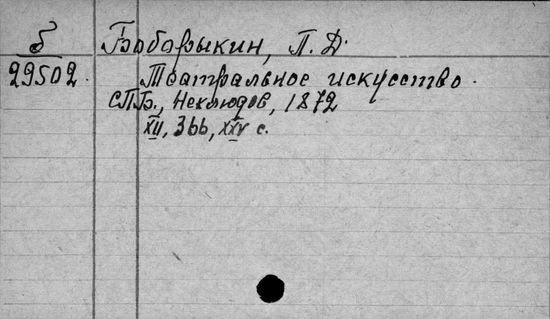 Б Боборыкин, П. Д.
29502. Театральное искусство.
СПБ., Неклюдов, 1872
XII, 366, XXV с.